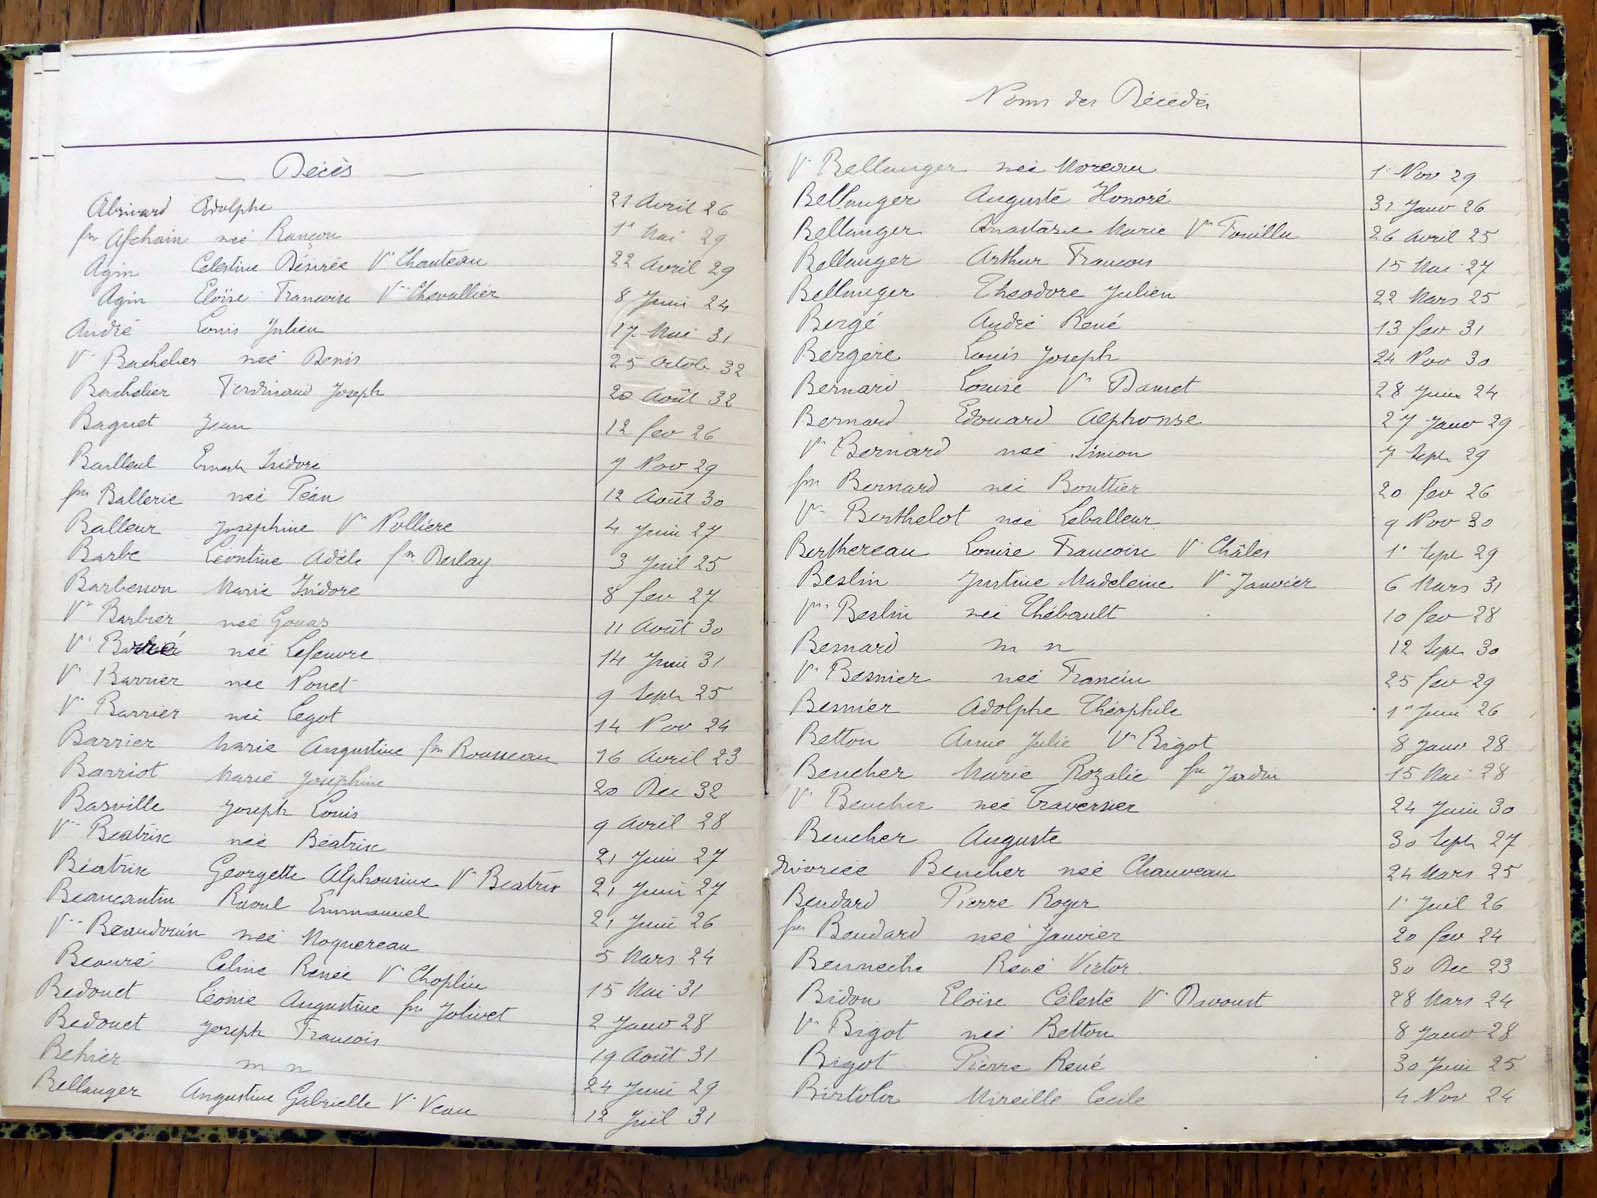 Décès
Abrivard Adolphe 21 Avril 26
fe Afchain née Rançon 1er Mai 29
Agin Celestine Désirée Ve Chauteau 22 Avril 29
Agin Eloïse Françoise Ve Chevallier 8 Juin 24
André Louis Julien 17 Mai 31
Ve Bachelier née Denis 25 Octob 32
Bachelier Ferdinand Joseph 20 Août 32
Baguet Jean 12 fev 26
Bailleul Ernest Isidore 7 Nov 29
fe Ballerie née Péan 12 Août 30
Balleur Joséphine Ve Pollière 4 Juin 27
Barbe Léontine Adèle fe Derlay 3 Juil 25
Barbenon Marie Isidore 8 fev 27
Ve Barbier née Gouas 11 Août 30
Ve née Lefeuvre 14 Juin 31
Ve Barrier née Pouet 9 Sept 25
Ve Barrier née Legot 14 Nov 24
Barrier Marie Augustine fe Rousseau 16 Avril 23
Barriot Marie Joséphine 20 Dec 32
Basville Joseph Louis 9 Avril 28
Ve Béatrix née Béatrix 21 Juin 27
Béatrix Georgette Alphonsine Ve Béatrix 21 Juin 27
Beaucantin Raoul Emmanuel 21 Juin 26
Ve Beaudouin née Noquereau 5 Mars 24
Beauré Céline Renée Ve Choplin 15 Mai 31
Bedouet Léonie Augustine fe Jolivet 2 Janv 28
Bedouet Joseph François 19 Août 31
Behier m n 24 Juin 29
Bellanger Augustine Gabrielle Ve Veau 12 Juil 31
Noms des Décédés
Ve Bellanger née Moreau 1er Nov 29
Bellanger Auguste Honoré 31 Janv 26
Bellanger Anastasie Marie Ve Fouillu 26 Avril 25
Bellanger Arthur François 15 Mai 27
Bellanger Théodore Julien 22 Mars 25
Bergé André René 13 fev 31
Bergère Louis Joseph 24 Nov 30
Bernard Louise Ve Damet 28 Juin 24
Bernard Edouard Alphonse 27 Janv 29
Ve Bernard née Simon 7 Sept 29
fe Bernard née Bouttier 20 fev 26
Ve Berthelot née Leballeur 9 Nov 30
Berthereau Louise Françoise Ve Châles 1er Sept 29
Beslin Justine Madeleine Ve Janvier 6 Mars 31
Ve Beslin née Thébault 10 fev 28
Besnard m n 12 Sept 30
Ve Besnier née Francin 25 fev 29
Besnier Adolphe Théophile 1er Juin 26
Betton Anne Julie Ve Bigot 8 Janv 28
Beucher Marie Rozalie fe Jardin 15 Mai 28
Ve Beucher née Travernier 24 Juin 30
Beucher Auguste 30 Sept 27
divorcée Beucher née Chauveau 24 Mars 25
Beudard Pierre Roger 1er Juil 26
fe Beudard née Janvier 20 fev 24
Beuneche René Victor 30 Dec 23
Bidou Eloïse Céleste Ve Davoust 28 Mars 24
Ve Bigot née Betton 8 Janv 28
Bigot Pierre René 30 Juin 25
Mireille Cécile 4 Nov 24